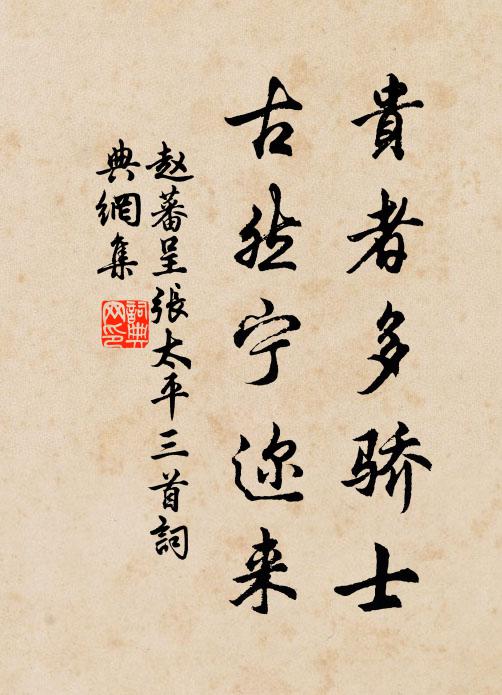 貴者多骄士
古然宁迩来
赵蕃呈張太平三首詞
典網集
詞典
网印